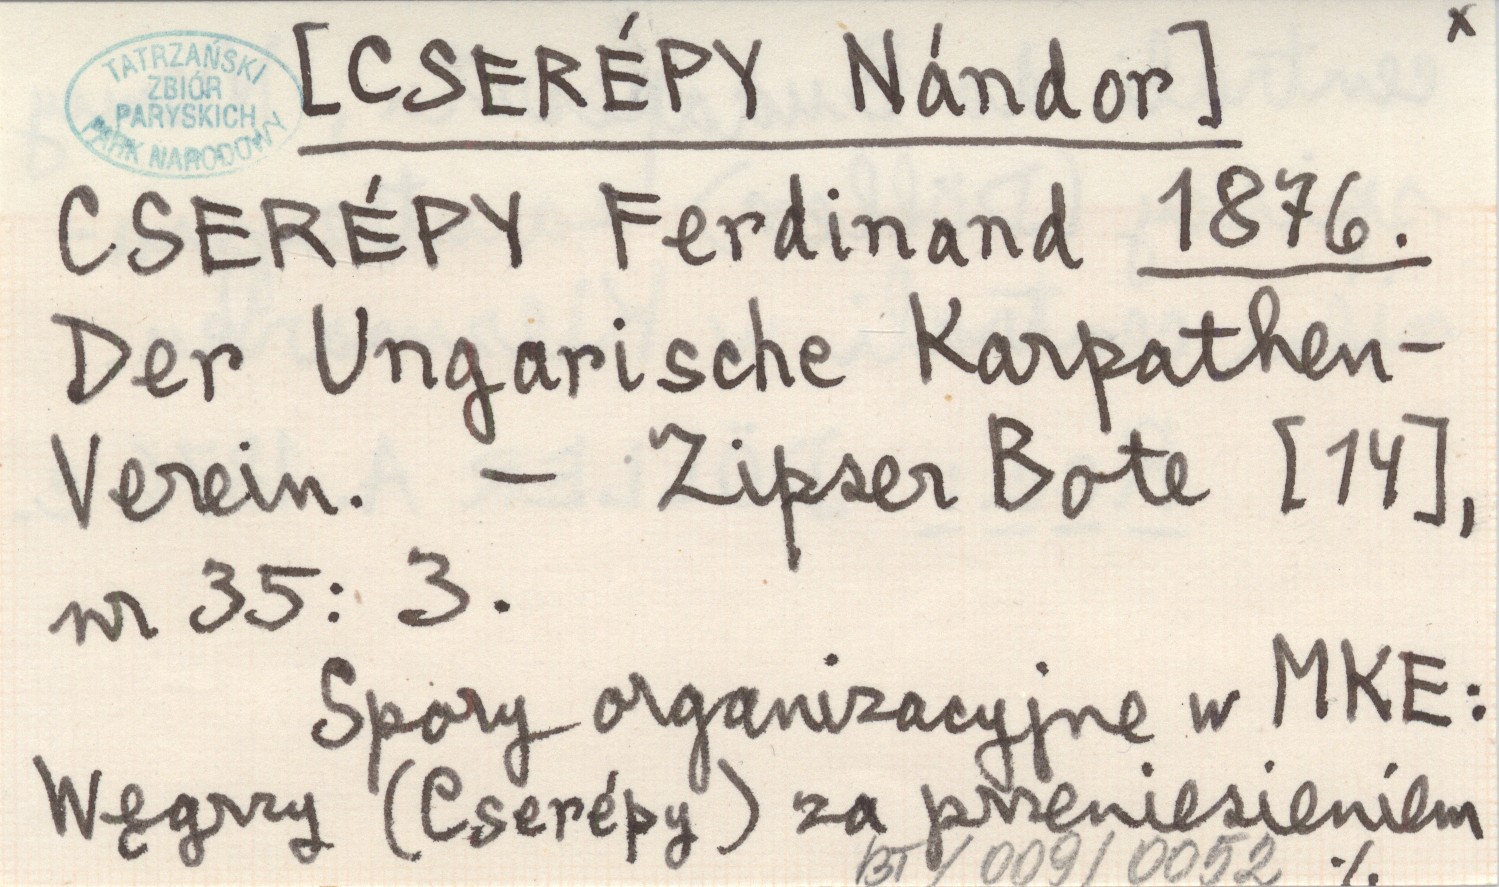 x
TATRZAŃSKI
ZBIÓR
PARYSKICH
PARK NARODOWY
[CSERÉPY Nándor]
CSERÉPY Ferdinand 1876.
Der Ungarische Karpathen-
Verein. — Zipser Bote [14],
nr 35: 3.
Spory organizacyjne w MKE:
Węgrzy (Cserépy) za przeniesieniem
BT/009/0052 ·/.